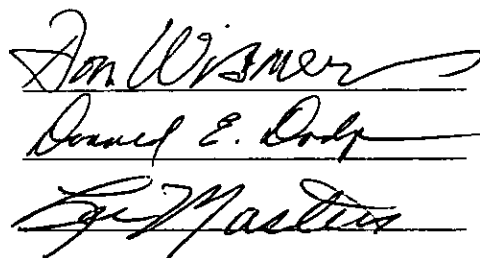 Don Wismer
Donald E. Dodge
Masters